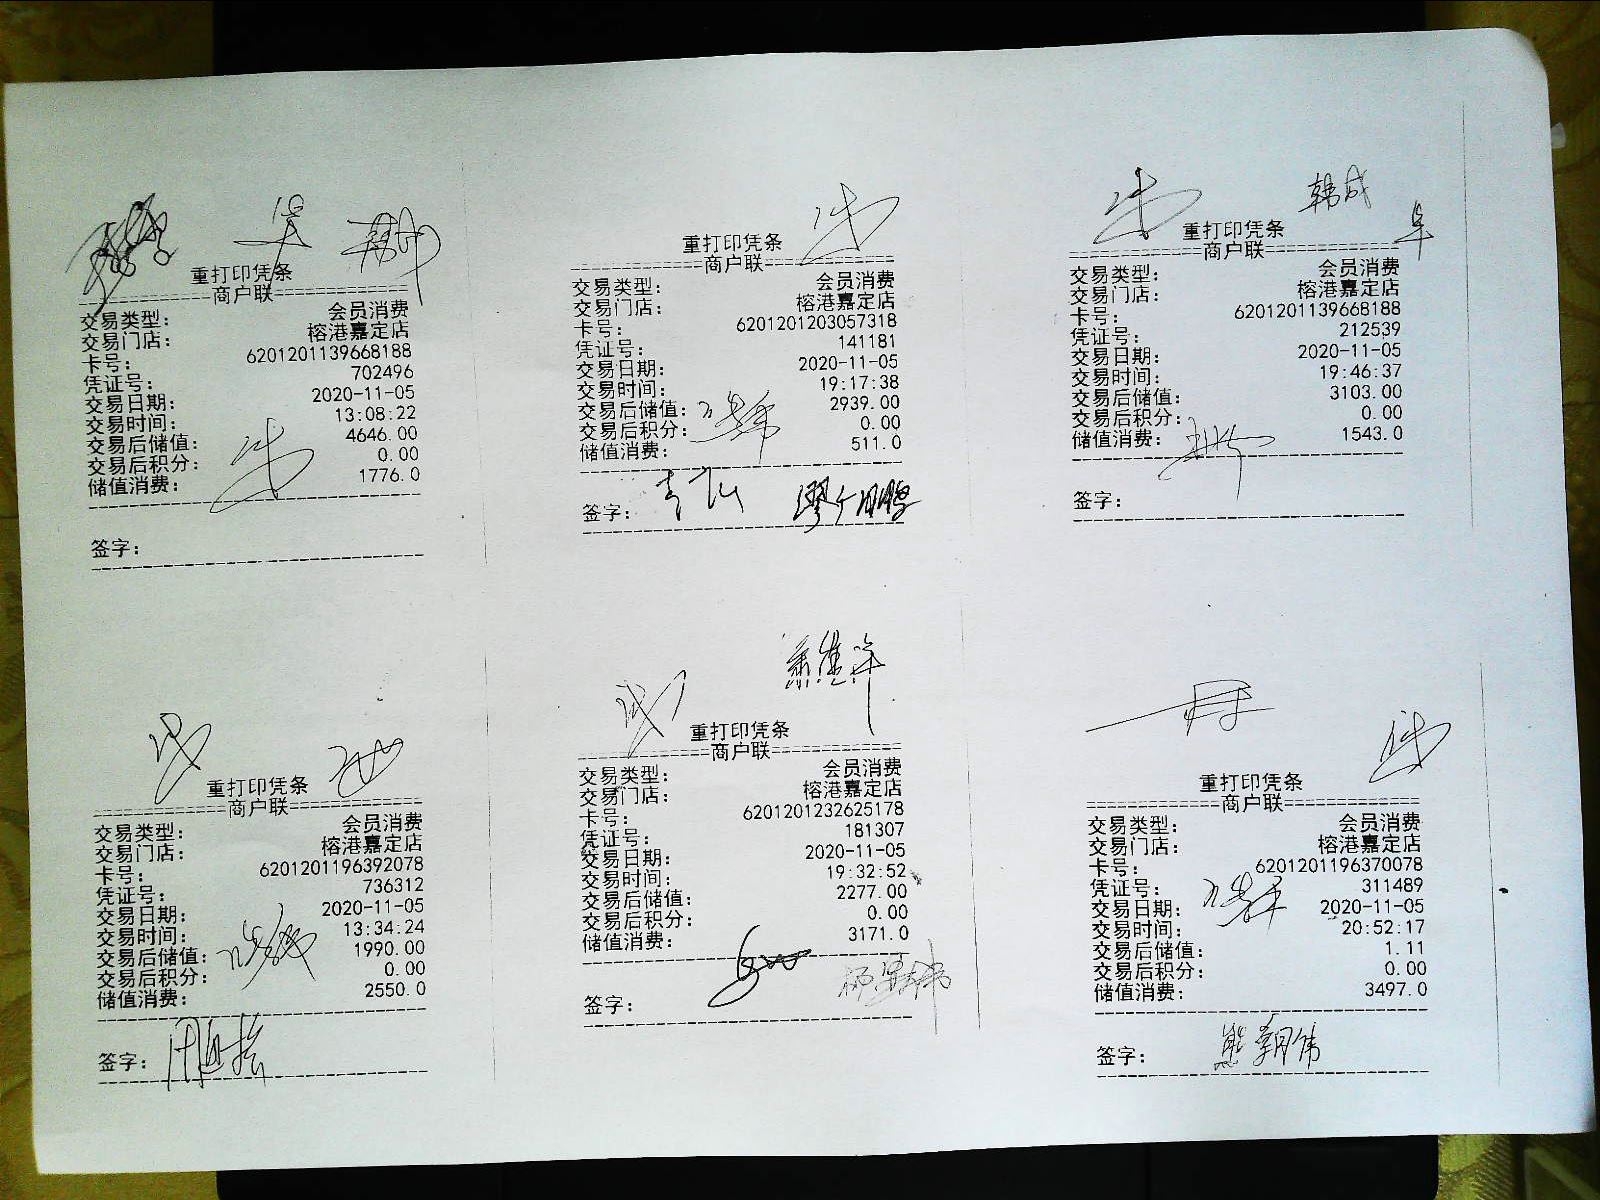 重打印凭条
商户联
交易类型： 会员消费
交易门店： 榕港嘉定店
卡号： 6201201139668188
凭证号： 702496
交易日期： 2020-11-05
交易时间： 13:08:22
交易后储值： 4646.00
交易后积分： 0.00
储值消费： 1776.0
签字：
重打印凭条
商户联
交易类型： 会员消费
交易门店： 榕港嘉定店
卡号： 6201201203057318
凭证号： 141181
交易日期： 2020-11-05
交易时间： 19:17:38
交易后储值： 2939.00
交易后积分： 0.00
储值消费： 511.0
签字：
韩成
重打印凭条
商户联
交易类型： 会员消费
交易门店： 榕港嘉定店
卡号： 6201201139668188
凭证号： 212539
交易日期： 2020-11-05
交易时间： 19:46:37
交易后储值： 3103.00
交易后积分： 0.00
储值消费： 1543.0
签字：
重打印凭条
商户联
交易类型： 会员消费
交易门店： 榕港嘉定店
卡号： 6201201196392078
凭证号： 736312
交易日期： 2020-11-05
交易时间： 13:34:24
交易后储值： 1990.00
交易后积分： 0.00
储值消费： 2550.0
签字：
重打印凭条
商户联
交易类型： 会员消费
交易门店： 榕港嘉定店
卡号： 6201201232625178
凭证号： 181307
交易日期： 2020-11-05
交易时间： 19:32:52
交易后储值： 2277.00
交易后积分： 0.00
储值消费： 3171.0
签字：
重打印凭条
商户联
交易类型： 会员消费
交易门店： 榕港嘉定店
卡号： 6201201196370078
凭证号： 311489
交易日期： 2020-11-05
交易时间： 20:52:17
交易后储值： 1.11
交易后积分： 0.00
储值消费： 3497.0
签字： 熊朝伟